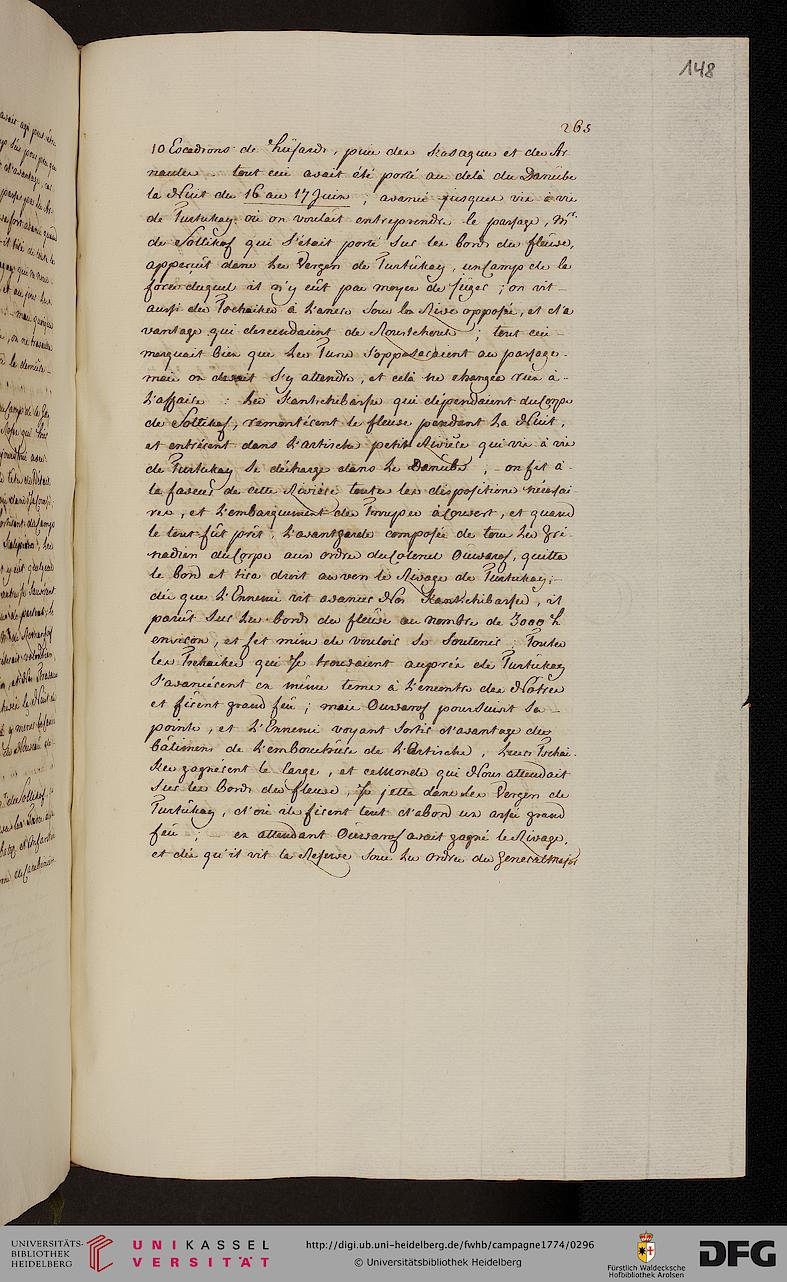 148
265
10 Escadrons de hüsards, puis des Kosaques et des Ar
nautes tout ceci avait été porté au delà du Danübe
la Nuit du 16 au 17 Juin ; avancé jusques vis à vis
de Turtukay où on voulait entreprendre le passage, Mr.
de Soltikof qui s'était porté sur les bords du fleüve,
apperçüt dans les Vergers de Turtükay, un Camp de la
force duquel il n'y eüt pas moyen de jüger ; on vit
aussi des Tschaikes à l'ancre sous la Rive opposée, et d'a
vantage qui descendaient de Rourschouk ; tout ceci
marquait bien que les Turcs s'opposeraient au passage.
mais on devait s'y attendre, et celà ne changea rien à
l'affaire : les Kantschibasses qui dépendaient du Corps
de Soltikof, remontèrent le fleuve pendant la Nuit,
et entrèrent dans l'artische petite Rivière qui vis à vis
de Turtukay se décharge dans le Danübe ; on fit à
la faveur de cette Rivière toutes les dispositions nécessai
res, et l'embarquement des Trouppes à couvert, et quand
le tout fût prêt, l'avantgarde composée de tous les Gre
nadiers du Corps aux ordres du Colonel Ouwarof, quitta
le bord et tira droit au vers le Rivage de Turtukay ;
dès que l'Ennemi vit avancer Nos Kantschibasses, il
parüt sur les bords du fleüve au nombre de 3000 h
environ, et fit mine de vouloir se soutenir : Toutes
les Tschaikes qui se trouvaient auprès de Turtükay
s'avancèrent en même tems à l'encontre des Nôtres
et firent grand feü ; mais Ouwarof poursuivit sa
pointe, et l'Ennemi voyant sortir d'avantage des
bâtimens de l'embouchüre de l'Artische, leurs Tschai-
kes gagnèrent le large, et ce Monde qui Nous attendait
sur les bords du fleuve, se jetta dans les Vergers de
Turtükay, d'où ils firent tout d'abord un assés grand
feü ; en attendant Ouwarof avait gagné le Rivage,
et dès qu'il vit la Reserve sous les ordres du General major
UNIVERSITÄTS-
BIBLIOTHEK
HEIDELBERG
UNIKASSEL
VERSITÄT
http://digi.ub.uni-heidelberg.de/fwhb/campagne1774/0296
© Universitätsbibliothek Heidelberg
Fürstlich Waldecksche
Hofbibliothek Arolsen
DFG